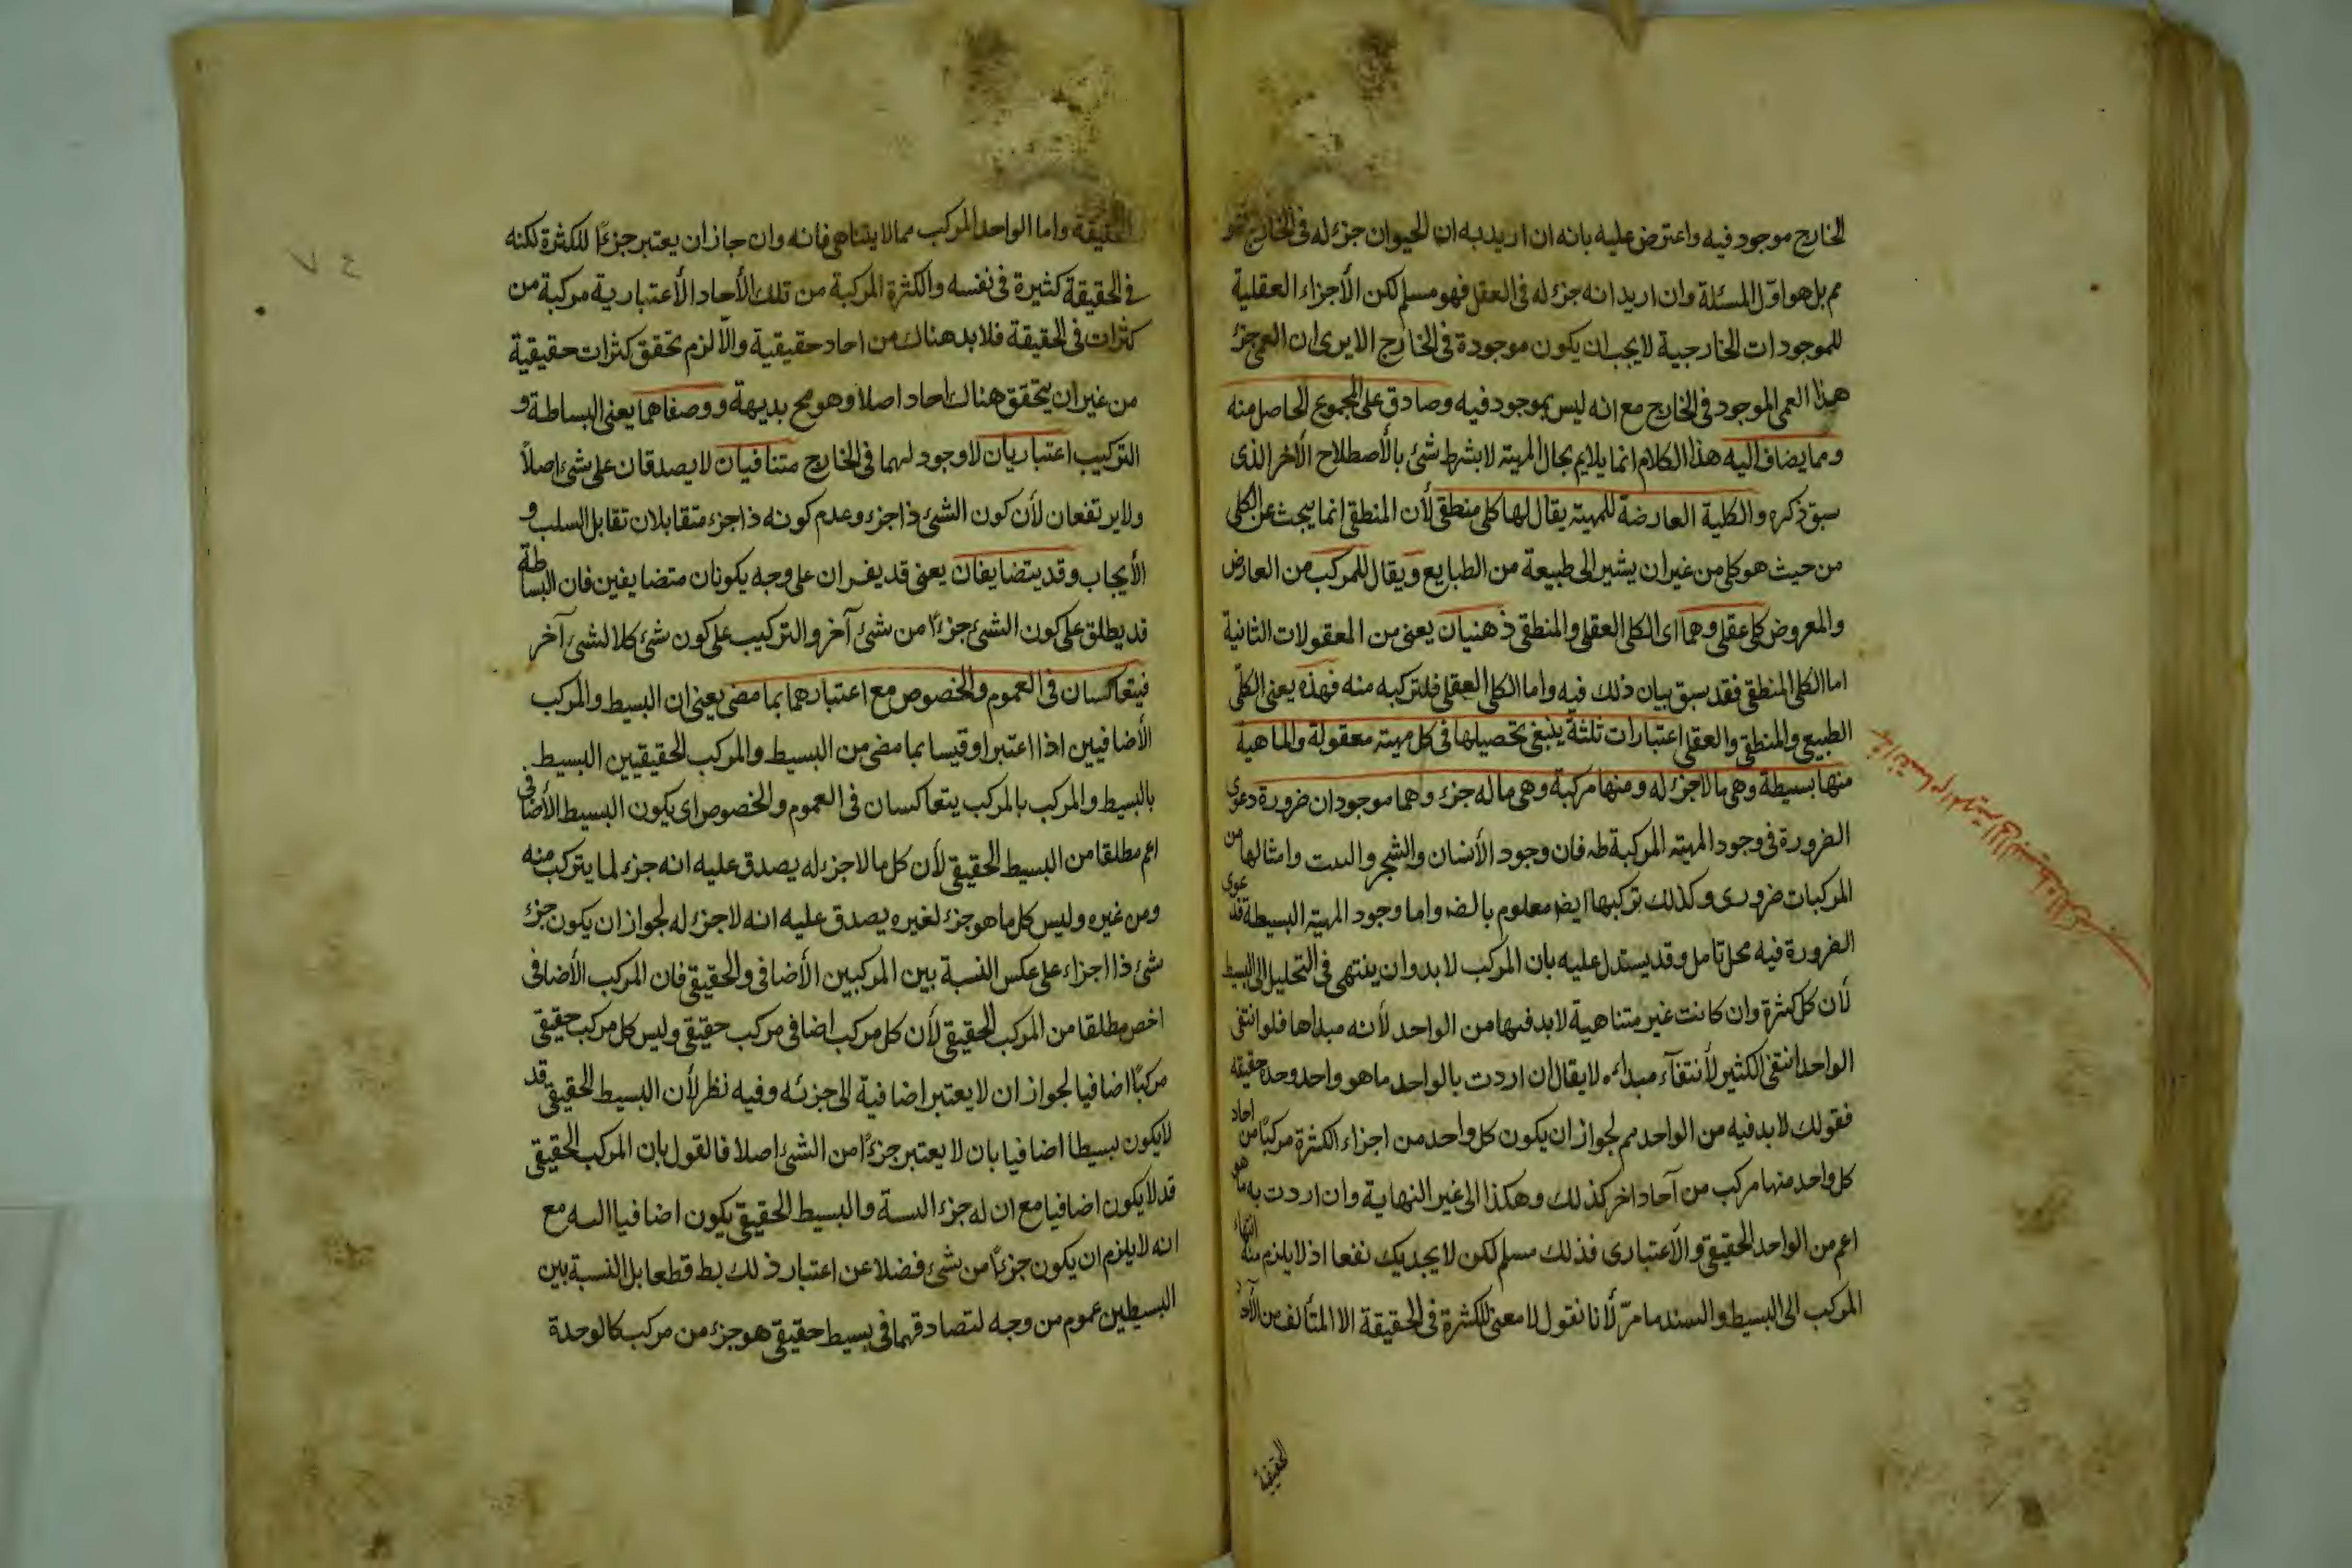 الخارج موجود فيه واعترض عليه بانه ان اريد به ان الحيوان جزء له فى الخارج فهو
مم بل هو اول المسئلة وان اريد انه جزء له فى العقل فهو مسلم لكن الأجزاء العقلية
للموجودات الخارجية لا يجب ان يكون موجودة فى الخارج الا يرى ان العمى جزء
هذا العمى الموجود فى الخارج مع انه ليس بموجود فيه وصادق على المجموع الحاصل منه
ومما يضاف اليه هذا الكلام انما يلايم بحال المهية لا بشرط شئ بالأصطلاح الآخر الذى
سبق ذكره والكلية العارضة للمهية يقال لها كلى منطقى لأن المنطقى انما يبحث عن الكلى
من حيث هو كلى من غير ان يشير الى طبيعة من الطبايع ويقال للمركب من العارض
والمعروض كلى عقلى وهما اى الكلى العقلى والمنطقى ذهنيان يعنى من المعقولات الثانية
اما الكلى المنطقى فقد سبق بيان ذلك فيه واما الكلى العقلى فلتركبه منه فهذه يعنى الكلى
الطبيعى والمنطقى والعقلى اعتبارات ثلثة ينبغى تحصيلها فى كل مهية معقولة والماهية
منها بسيطة وهى ما لا جزء له ومنها مركبة وهى ما له جزء وهما موجودان ضرورة دعوى
الضرورة فى وجود المهية المركبة ظه فان وجود الأنسان والشجر والبيت وامثالها من
المركبات ضرورى وكذلك تركبها ايضا معلوم بالضه واما وجود المهية البسيطة فدعوى
الضرورة فيه محل تأمل وقد يستدل عليه بان المركب لا بد وان ينتهى فى التحليل الى البسيط
لأن كل كثرة وان كانت غير متناهية لا بد فيها من الواحد لأنه مبداها فلو انتفى
الواحد انتفى الكثير لأنتفاء مبدائه لا يقال ان اردت بالواحد ما هو واحد وحدة حقيقة
فقولك لا بد فيه من الواحد مم لجواز ان يكون كل واحد من اجزاء الكثرة مركبًا من احاد
كل واحد منها مركب من آحاد اخر كذلك وهكذا الى غير النهاية وان اردت به ما هو
اعم من الواحد الحقيقى والأعتبارى فذلك مسلم لكن لا يجديك نفعا اذ لا يلزم منه انتهاء
المركب الى البسيط والسند ما مرّ لأنا نقول لا معنى للكثرة فى الحقيقة الا المتألف من الآحاد
الحقيقة
الحقيقة واما الواحد المركب مما لا يتناهى فانه وان جاز ان يعتبر جزءًا للكثرة لكنه
فى الحقيقة كثيرة فى نفسه والكثرة المركبة من تلك الأحاد الأعتبارية مركبة من
كثرات فى الحقيقة فلا بد هناك من احاد حقيقية والّا لزم تحقق كثرات حقيقية
من غير ان يتحقق هناك احاد اصلا وهو مح بديهة ووصفاهما يعنى البساطة و
التركيب اعتباريان لا وجود لهما فى الخارج متنافيان لا يصدقان على شئ اصلاً
ولا يرتفعان لأن كون الشئ ذا جزء وعدم كونه ذا جزء متقابلان تقابل السلب و
الأيجاب وقد يتضايفان يعنى قد يفسران على وجه يكونان متضايفين فان البساطة
قد يطلق على كون الشئ جزءًا من شئ آخر والتركيب على كون شئ كلا لشئ آخر
فيتعاكسان فى العموم والخصوص مع اعتبارهما بما مضى يعنى ان البسيط والمركب
الأضافيين اذا اعتبرا وقيسا بما مضى من البسيط والمركب الحقيقيين البسيط
بالبسيط والمركب بالمركب يتعاكسان فى العموم والخصوص اى يكون البسيط الأضافى
اعم مطلقا من البسيط الحقيقى لأن كل ما لا جزء له يصدق عليه انه جزء لما يتركب منه
ومن غيره وليس كل ما هو جزء لغيره يصدق عليه انه لا جزء له لجواز ان يكون جزء
شئ ذا اجزاء على عكس النسبة بين المركبين الأضافى والحقيقى فان المركب الأضافى
اخص مطلقا من المركب الحقيقى لأن كل مركب اضافى مركب حقيقى وليس كل مركب حقيقى
مركبًا اضافيا لجواز ان لا يعتبر اضافية الى جزئه وفيه نظر لأن البسيط الحقيقى قد
لا يكون بسيطا اضافيا بان لا يعتبر جزءًا من الشئ اصلا فالقول بان المركب الحقيقى
قد لا يكون اضافيا مع ان له جزء البتة والبسيط الحقيقى يكون اضافيا البتة مع
انه لا يلزم ان يكون جزءًا من شئ فضلا عن اعتبار ذلك بط قطعا بل النسبة بين
البسيطين عموم من وجه لتصادقهما فى بسيط حقيقى هو جزء من مركب كالوحدة
٧٤